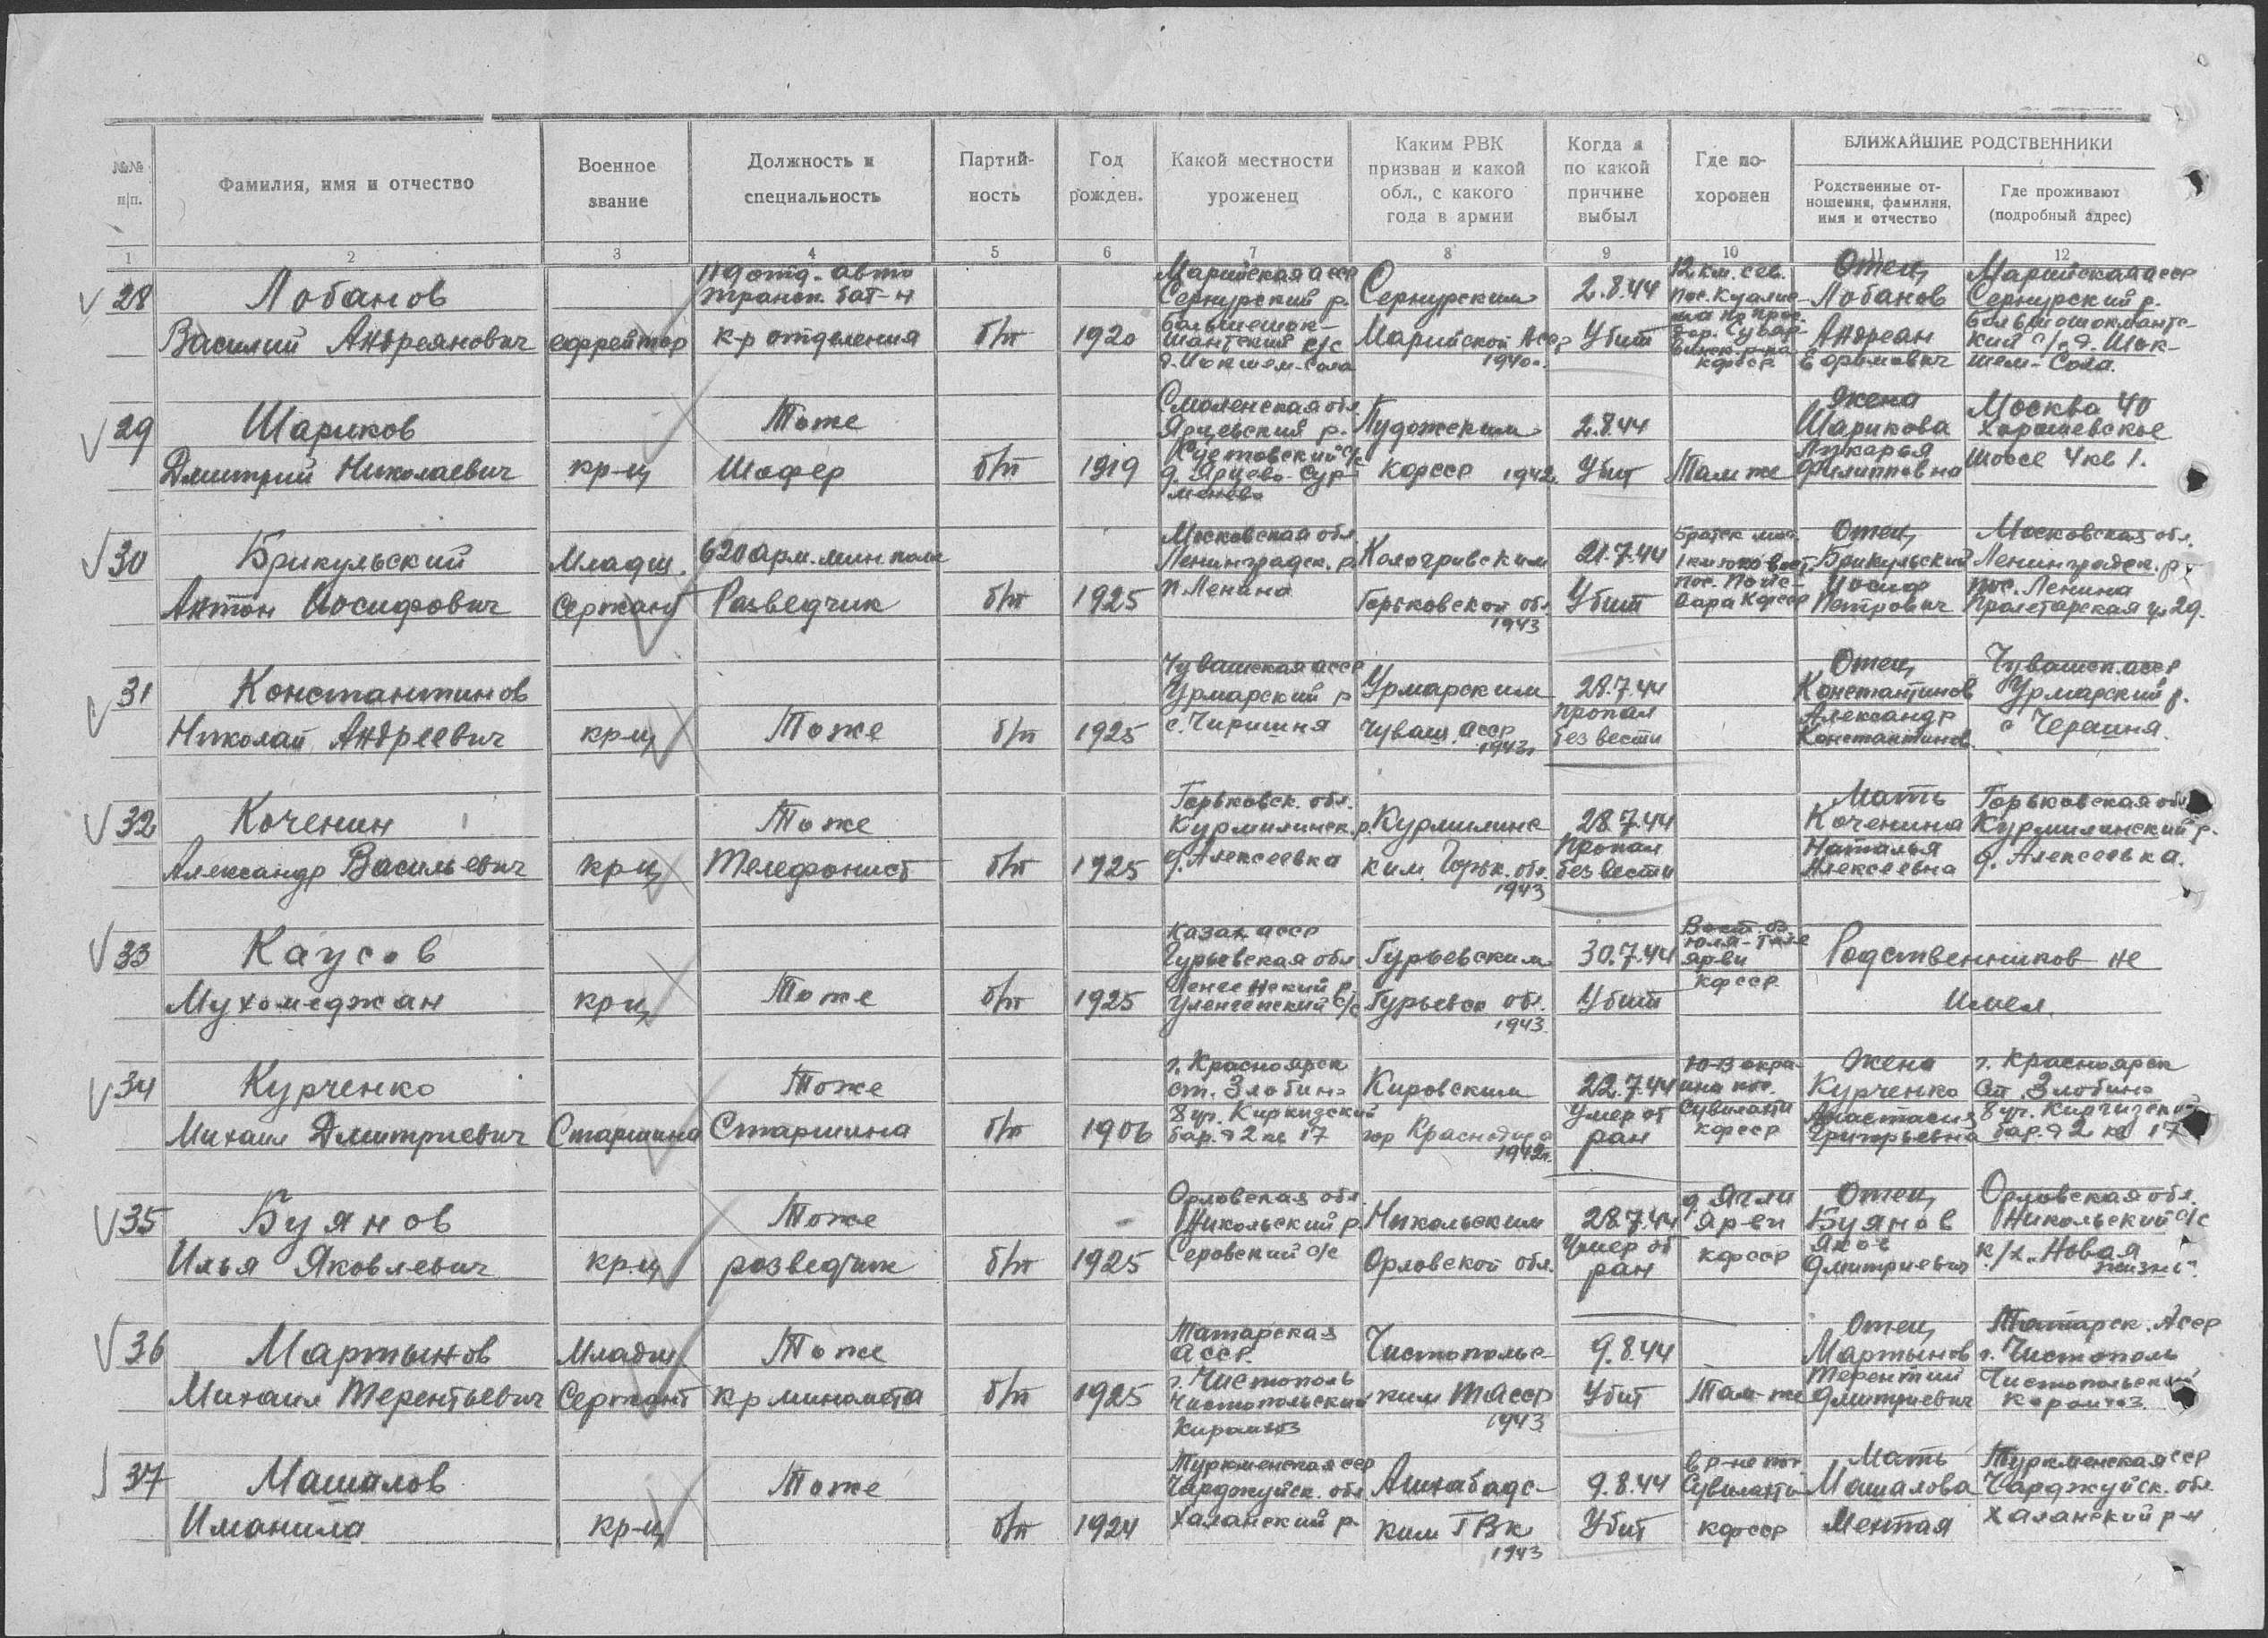 №№ п/п.
Фамилия, имя и отчество
Военное звание
Должность и специальность
Партий-ность
Год рожден.
Какой местности уроженец
Каким РВК призван и какой обл., с какого года в армии
Когда и по какой причине выбыл
Где по-хоронен
БЛИЖАЙШИЕ РОДСТВЕННИКИ
Родственные от-ношения, фамилия, имя и отчество
Где проживают (подробный адрес)
1 2 3 4 5 6 7 8 9 10 11 12
28 Лобанов
Василий Андреянович
ефрейтор
отд. авто
транск. бат-н
к-р отделения
б/п
1920
Марийская асср
Сернурский р.
с/с
Сернурским
Марийской Асср
1940г.
2.8.44
Убит
12 км. сев.
кфсср
Отец
Лобанов
Андреан
Марийская асср
Сернурский р.
кий с/с д. Шок-
шем-Сола.
29 Шариков
Дмитрий Николаевич
кр-ц
Тоже
Шофер
б/п
1919
Смоленская обл.
Ярцевский р.
Пудожским
кфсср 1942
2.8.44
Убит
Там же
Жена
Шарикова
Лукарья
Филипповна
Москва 40
Хорошевское
шоссе 4 кв 1.
30 Брикульский
Антон Иосифович
Младш.
Сержант
620 арм. мин полк
Разведчик
б/п
1925
Московская обл.
Ленинградск. р.
п. Ленина
Кологривским
Горьковской обл.
1943
21.7.44
Убит
Братск мог.
1 км юго вост.
кфсср
Отец
Брикульский
Иосиф
Петрович
Московская обл.
Ленинградск. р.
пос. Ленина
Пролетарская у. 29.
31 Константинов
Николай Андреевич
кр-ц
Тоже
б/п
1925
Чувашская асср
Урмарский р
с. Чиришня
Урмарским
Чуваш. асср
1943г
28.7.44
пропал
без вести
Отец
Константинов
Александр
Константинов.
Чувашск. асср
Урмарский р.
с Черашня.
32 Коченин
Александр Васильевич
кр-ц
Тоже
Телефонист
б/п
1925
Горьковск. обл.
Курмилинск. р.
д. Алексеевка
Курмилинс
ким. Горьк. обл.
1943
28.7.44
пропал
без вести
Мать
Коченина
Наталья
Алексеевна
Горьковская обл
Курмиланский р.
д. Алексеевка.
33 Каусов
Мухомеджан
кр-ц
Тоже
б/п
1925
Казах асср
Гурьевская обл.
Гурьевским
Гурьевск обл.
1943.
30.7.44
Убит
ярви
кфсср
Родственников не
Имел.
34 Курченко
Михаил Дмитриевич
Старшина
Тоже
Старшина
б/п
1906
г. Красноярск
ст. Злобино
бар. д 2 кв 17
Кировским
гор Красноярск
1942г.
22.7.44
Умер от
ран
Ю-В окра-
ина пос.
Сувилахти
кфсср
Жена
Курченко
Анастасия
Григорьевна
г. Красноярск
Ст. Злобино
8 уч. Киргизский
бар. д 2 кв 17
35 Буянов
Илья Яковлевич
кр-ц
Тоже
розведчик
б/п
1925
Орловская обл.
Никольский р.
Серовский с/с
Никольским
Орловской обл.
28.7.44
Умер от
ран
д. Ягли
ярви
кфсср
Отец
Буянов
Яков
Дмитриевич
Орловская обл.
Никольский с/с
к/х. "Новая
жизнь".
36 Мартынов
Михаил Терентьевич
Младш.
Сержант
Тоже
кр миномета
б/п
1925
Татарская
Асср.
г. Чистополь
Чистопольский
Чистопольс-
ким ТАсср
1943
9.8.44
Убит
Там-же
Отец
Мартынов
Терентий
Дмитриевич
Татарск. Асср
г. Чистополь
Чистопольский
37 Машалов
Иманила
кр-ц
Тоже
б/п
1924
Туркменская сср
Чарджуйск. обл
Халанский р.
Ашхабадс-
ким ГВк
1943
9.8.44
Убит
в р-не пос.
Сувилахти
кфсср
Мать
Машалова
Ментая
Туркменская сср
Чарджуйск. обл
Халанский р-н